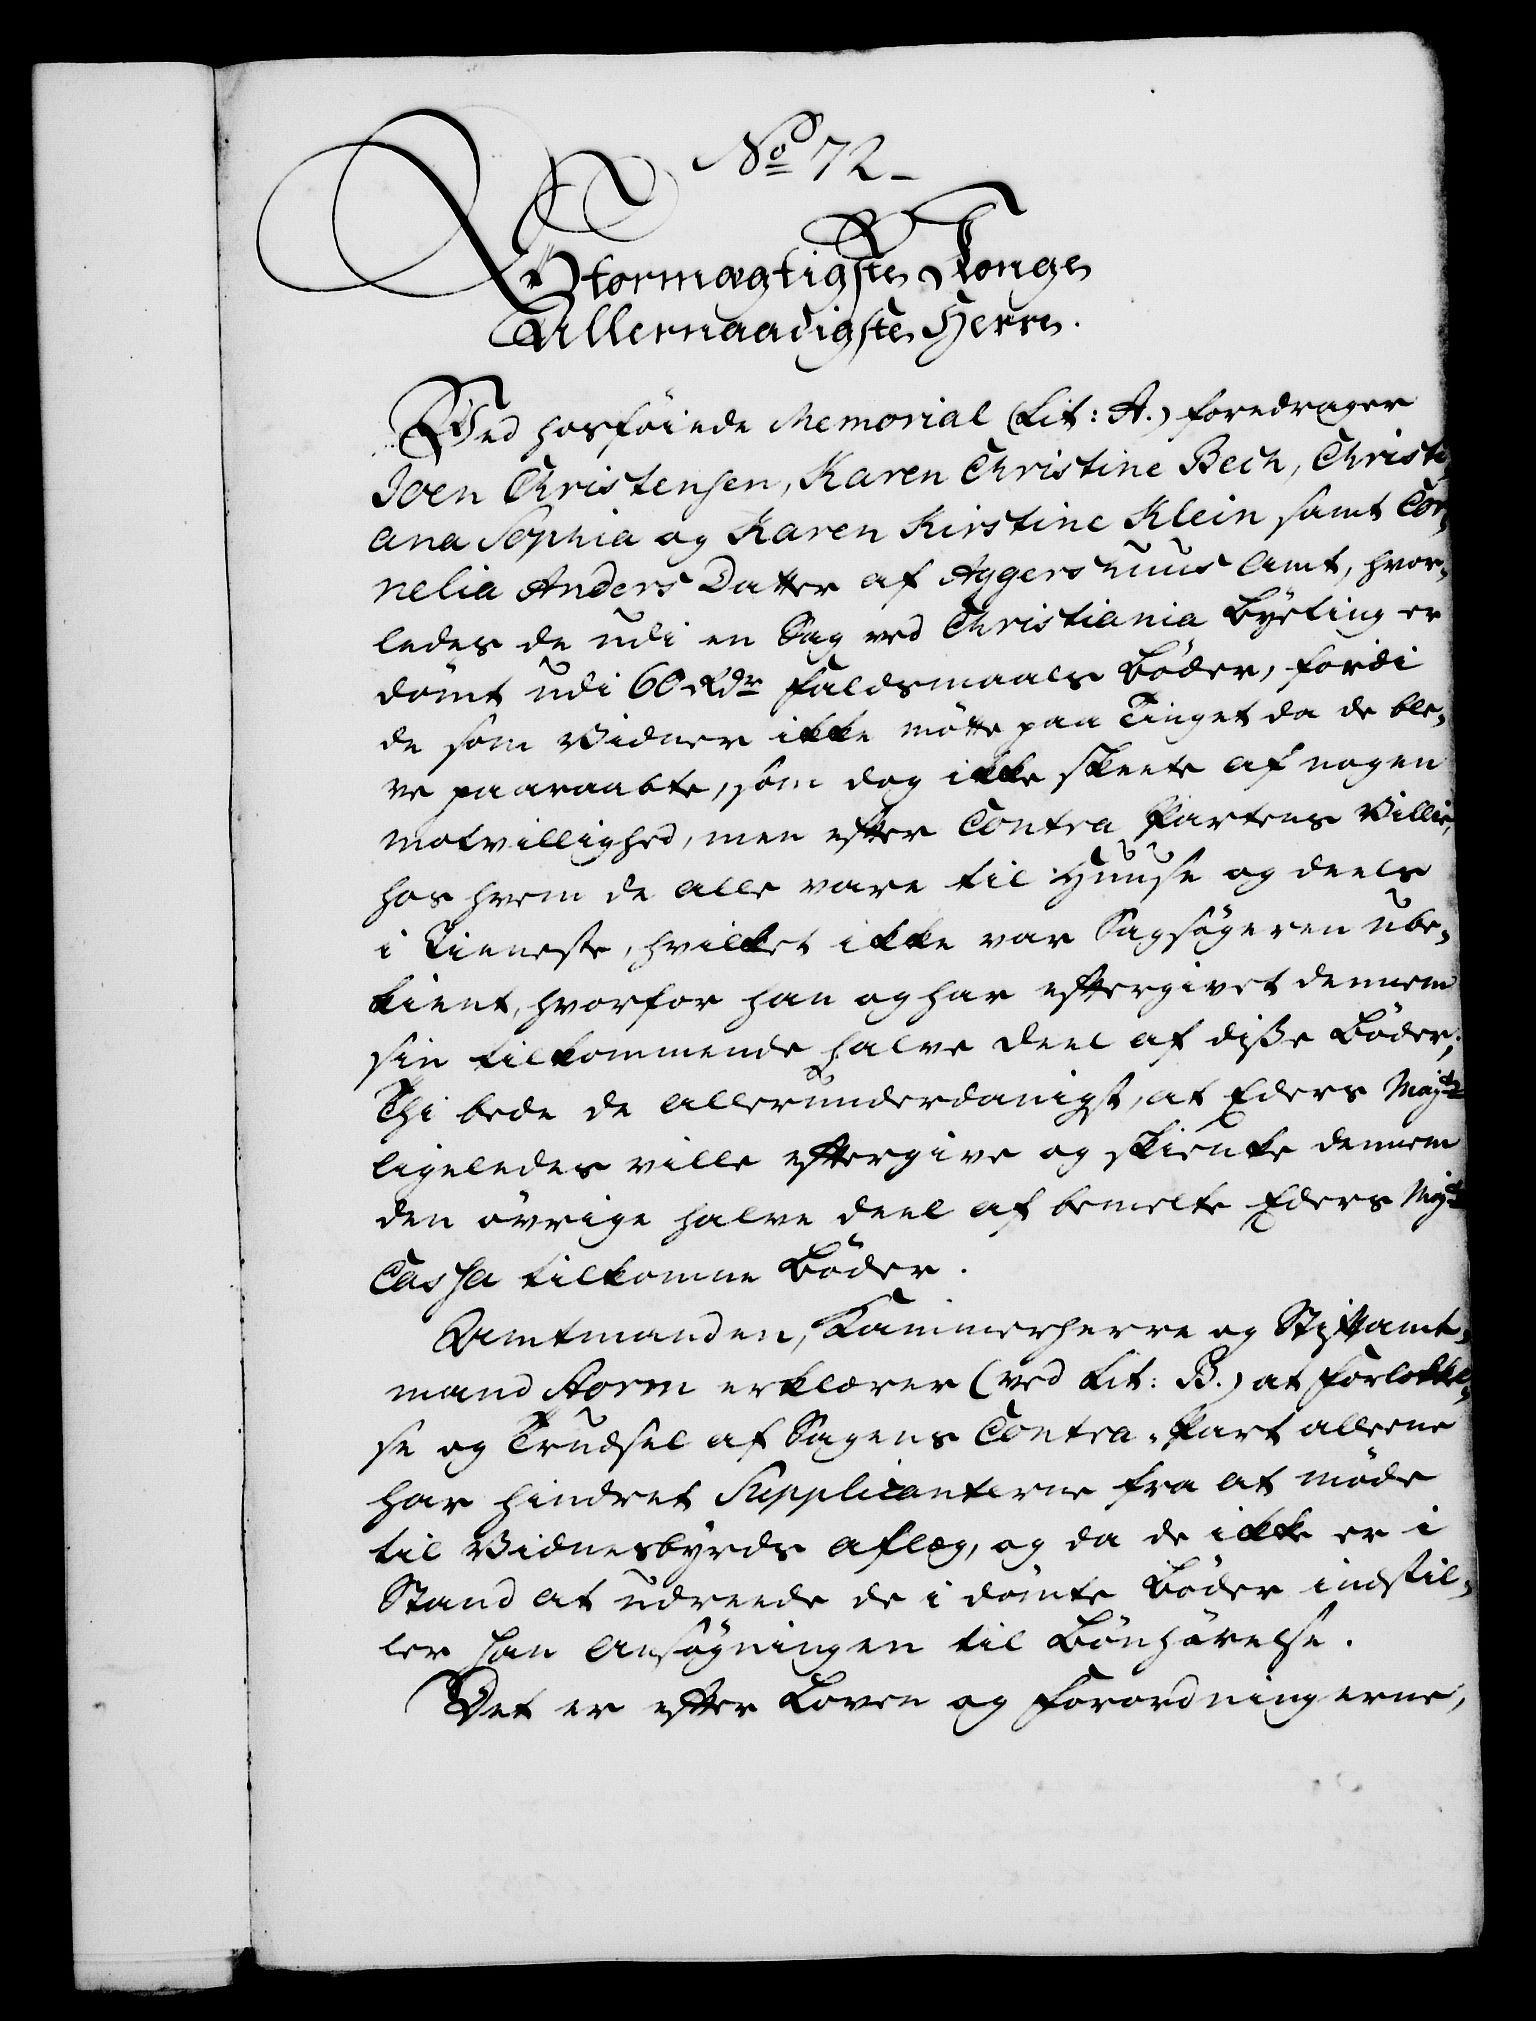 No 72
Stormægtigste Konge
Allernaadigste Herre.
Ved hosföiede Memorial (Lit: A.) foredrager
Joen Christensen, Karen Christine Bech, Christi,
ana Sophia og Karen Kirstine Klein samt Cor,
nelia Anders Datter af Aggershuus Amt, hvor,
ledes de udi en Sag ved Christiania Byeting er
dömt udi 60 Rdr Faldsmaals Böder, fordi
de som Vidner ikke mötte paa Tinget da de ble,
ve paaraabte, som dog ikke skeete af nogen
motvillighed, men efter Contra Partens Villie,
hos hvem de alle vare til Huuse og deels
i Tieneste, hvilket ikke var Sagsögeren ube,
kient, hvorfor han og har eftergivet dennem
sin tilkommende halve Deel af diße Böder;
Thi bede de allerunderdanigst, at Eders Mayts
ligeledes ville eftergive og skienke dennem
den övrige halve deel af bemelte Eders Mayts
Cassa tilkomne Böder.
Amtmanden, Kammerherre og Stiftamt,
mand Storm erklærer (ved Lit: B.) at Forlokkel,
se og Trudsel af Sagens Contra-Part alleene
har hindret Supplicanterne fra at möde
til Vidnesbyrds aflæg, og da de ikke er i
Stand at udreede de i dömte Böder indstil,
ler han Ansögningen til Bönhörelse.
Det er efter Loven og Forordningerne,